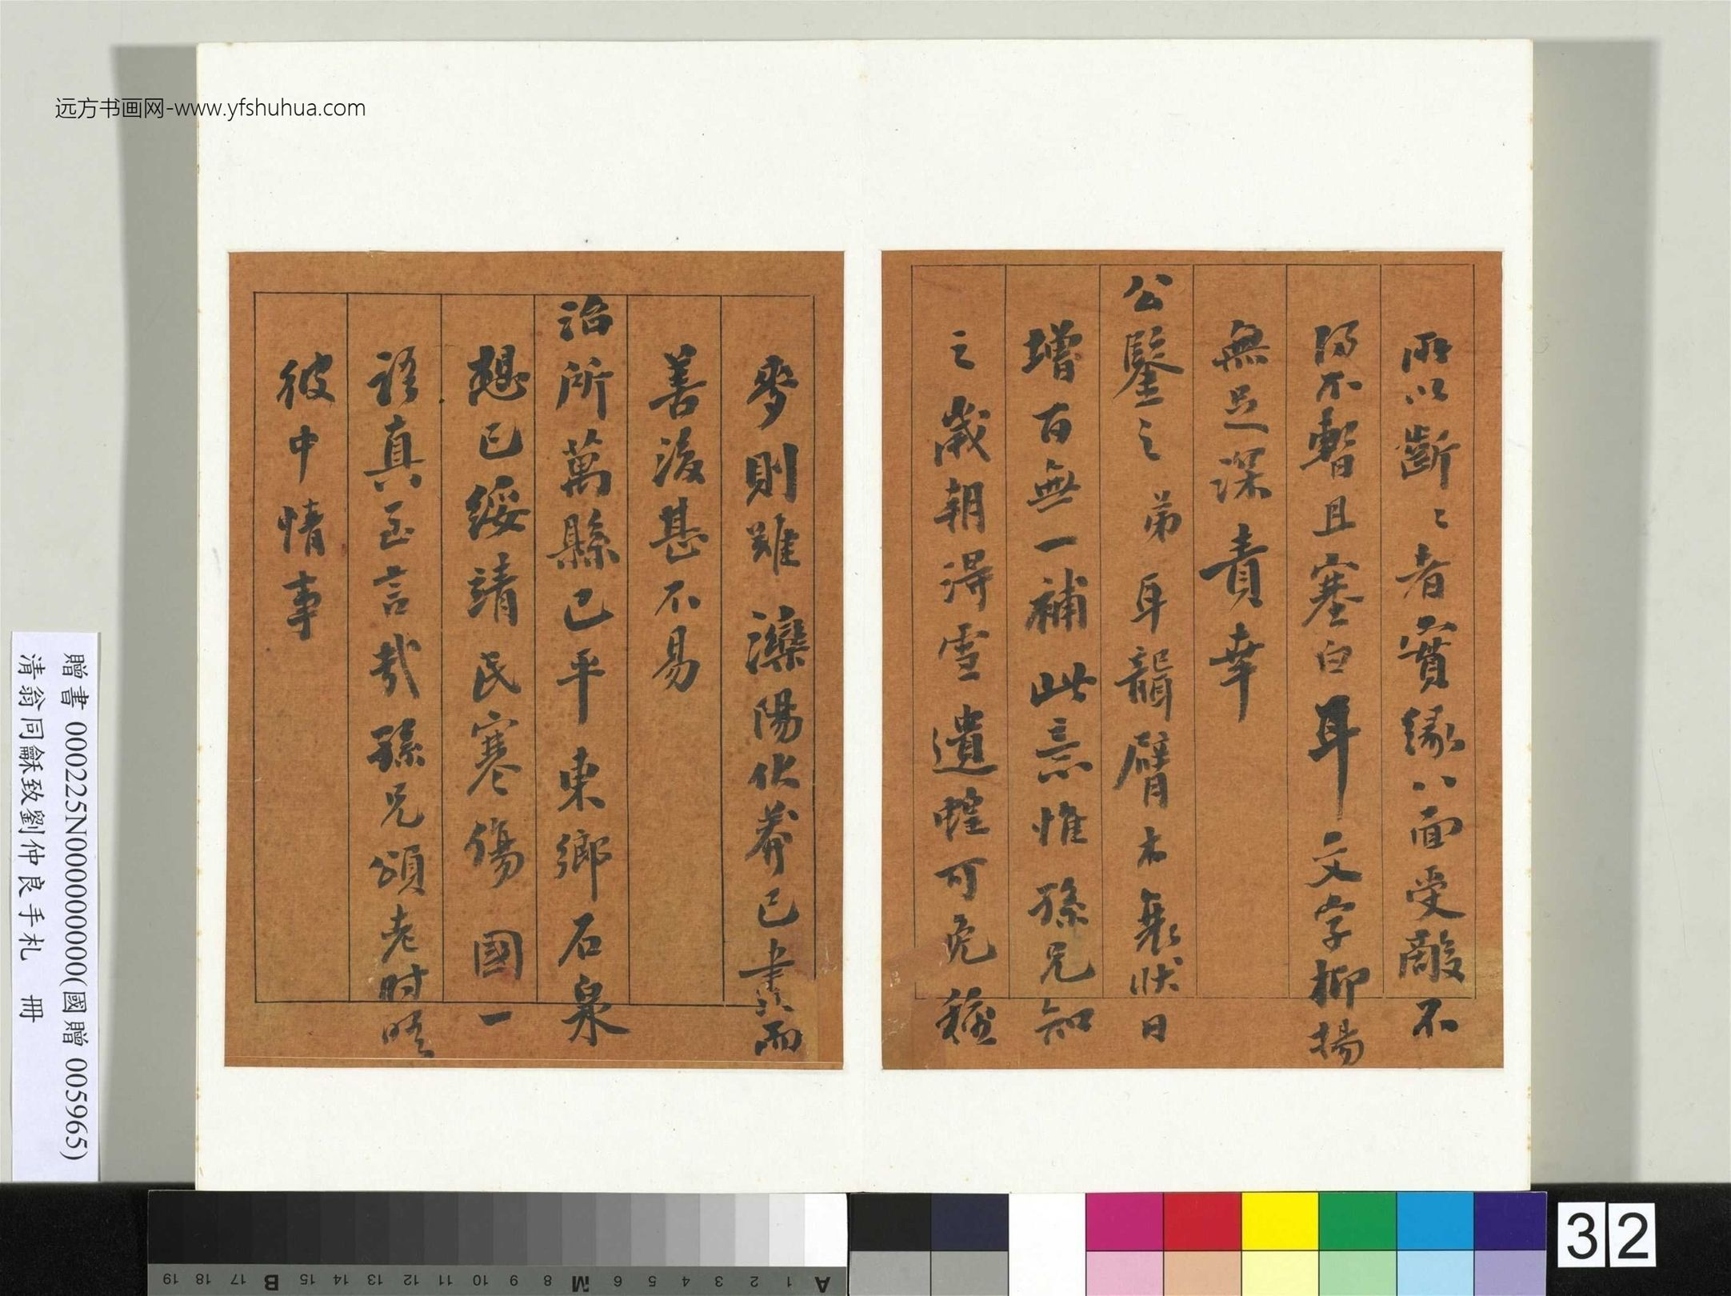 远方书画网-www.yfshuhua.com
所以斷〻者實緣八面受敵不
得不暫且塞白耳文字抑揚
無足深責幸
公鑒之弟耳聾臂木衰狀日
增百無一補此意惟孫兄知
之歲朝得雪遺蝗可免種
麥則難灤陽伏莽已盡而
善後甚不易
治所萬縣已平東鄉石泉
想已綏靖民寒傷國一
語真至言哉孫兄頌老時晤
彼中情事
贈書 000225N000000000(國贈 005965)
清翁同龢致劉仲良手札 冊
32
A 1 2 3 4 5 6 M 8 9 10 11 12 13 14 15 B 17 18 19